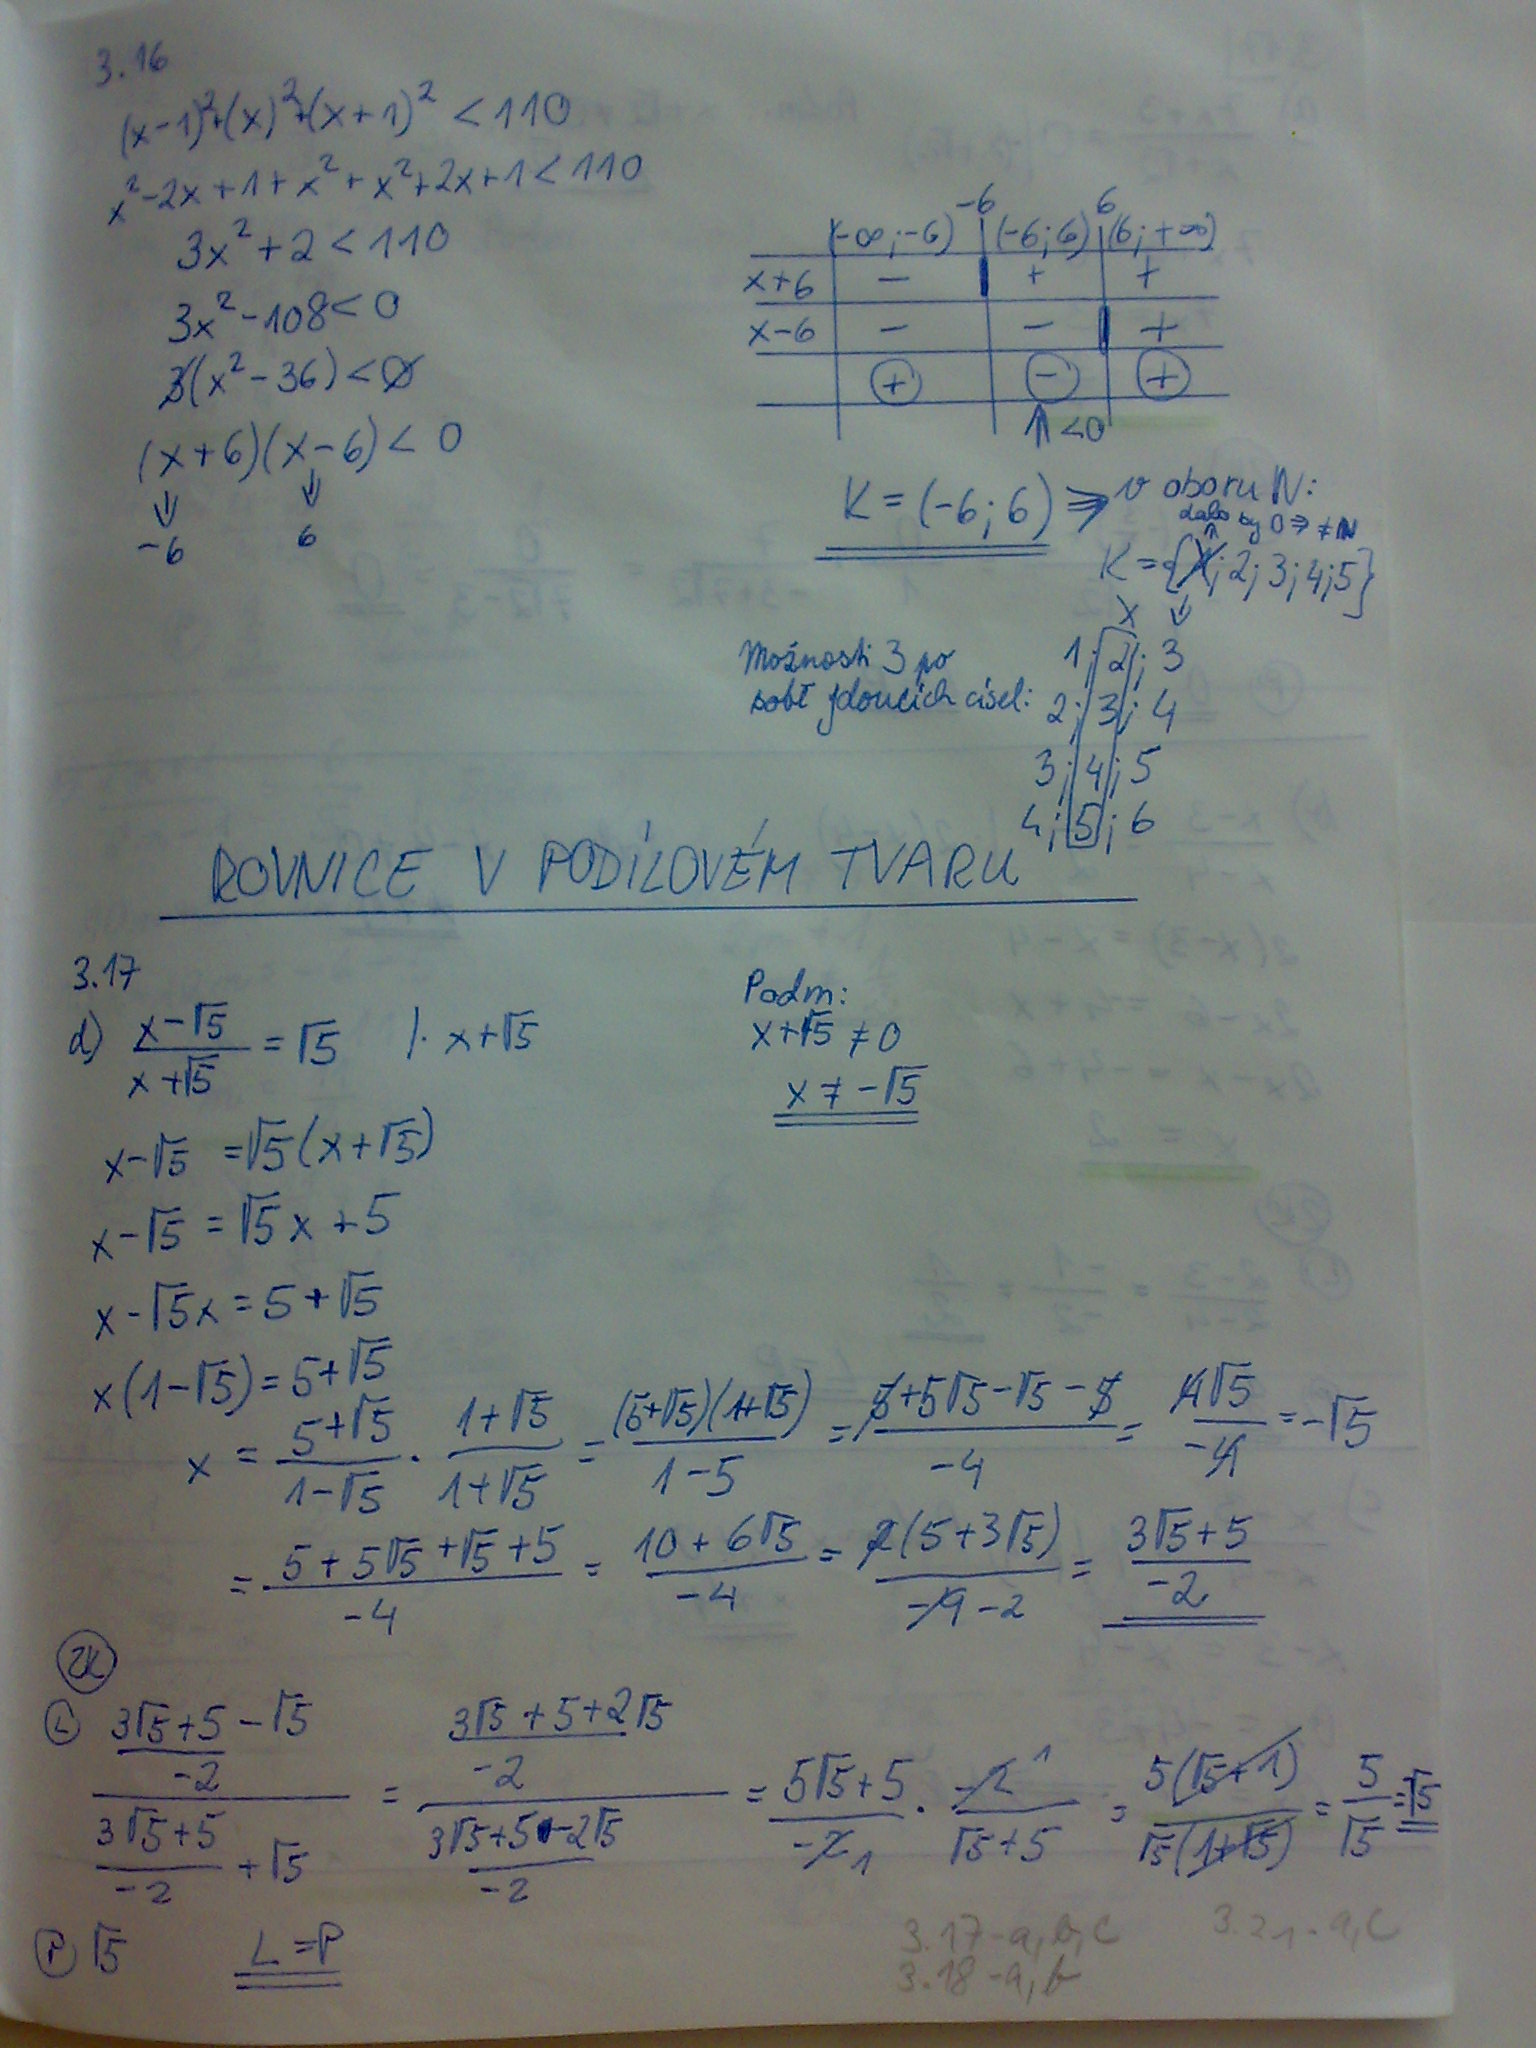 3.16
(x-1)²+(x)²+(x+1)² < 110
x²-2x+1+x²+x²+2x+1 < 110
3x²+2 < 110
3x²-108 < 0
3(x²-36) < 0
(x+6)(x-6) < 0
-6 6
-6 6
(-∞;-6) (-6;6) (6;+∞)
x+6 - + +
x-6 - - +
+ - +
↑ <0
K = (-6;6) ⇒ v oboru N:
dalo by 0 ⇒ ≠ N
K = {1; 2; 3; 4; 5}
x
Možnosti 3 po
sobě jdoucích čísel:
1; 2; 3
2; 3; 4
3; 4; 5
4; 5; 6
ROVNICE V PODÍLOVÉM TVARU
3.17
d) (x-√5)/(x+√5) = √5 /· x+√5
Podm:
x+√5 ≠ 0
x ≠ -√5
x-√5 = √5(x+√5)
x-√5 = √5x+5
x-√5x = 5+√5
x(1-√5) = 5+√5
x = (5+√5)/(1-√5) · (1+√5)/(1+√5) = (5+√5)(1+√5)/(1-5) = (5+5√5-√5-5)/(-4) = 4√5/(-4) = -√5
= (5+5√5+√5+5)/(-4) = (10+6√5)/(-4) = 2(5+3√5)/(-4) -2 = (3√5+5)/(-2)
ZK
L ((3√5+5)/(-2) - √5)/((3√5+5)/(-2) + √5) = ((3√5+5+2√5)/(-2))/((3√5+5-2√5)/(-2)) = (5√5+5)/(-2) 1 · (-2) 1/(√5+5) = 5(√5+1)/(√5(1+√5)) = 5/√5 = √5
P √5 L = P
3.17-a,b,c 3.21-a,c
3.18-a,b